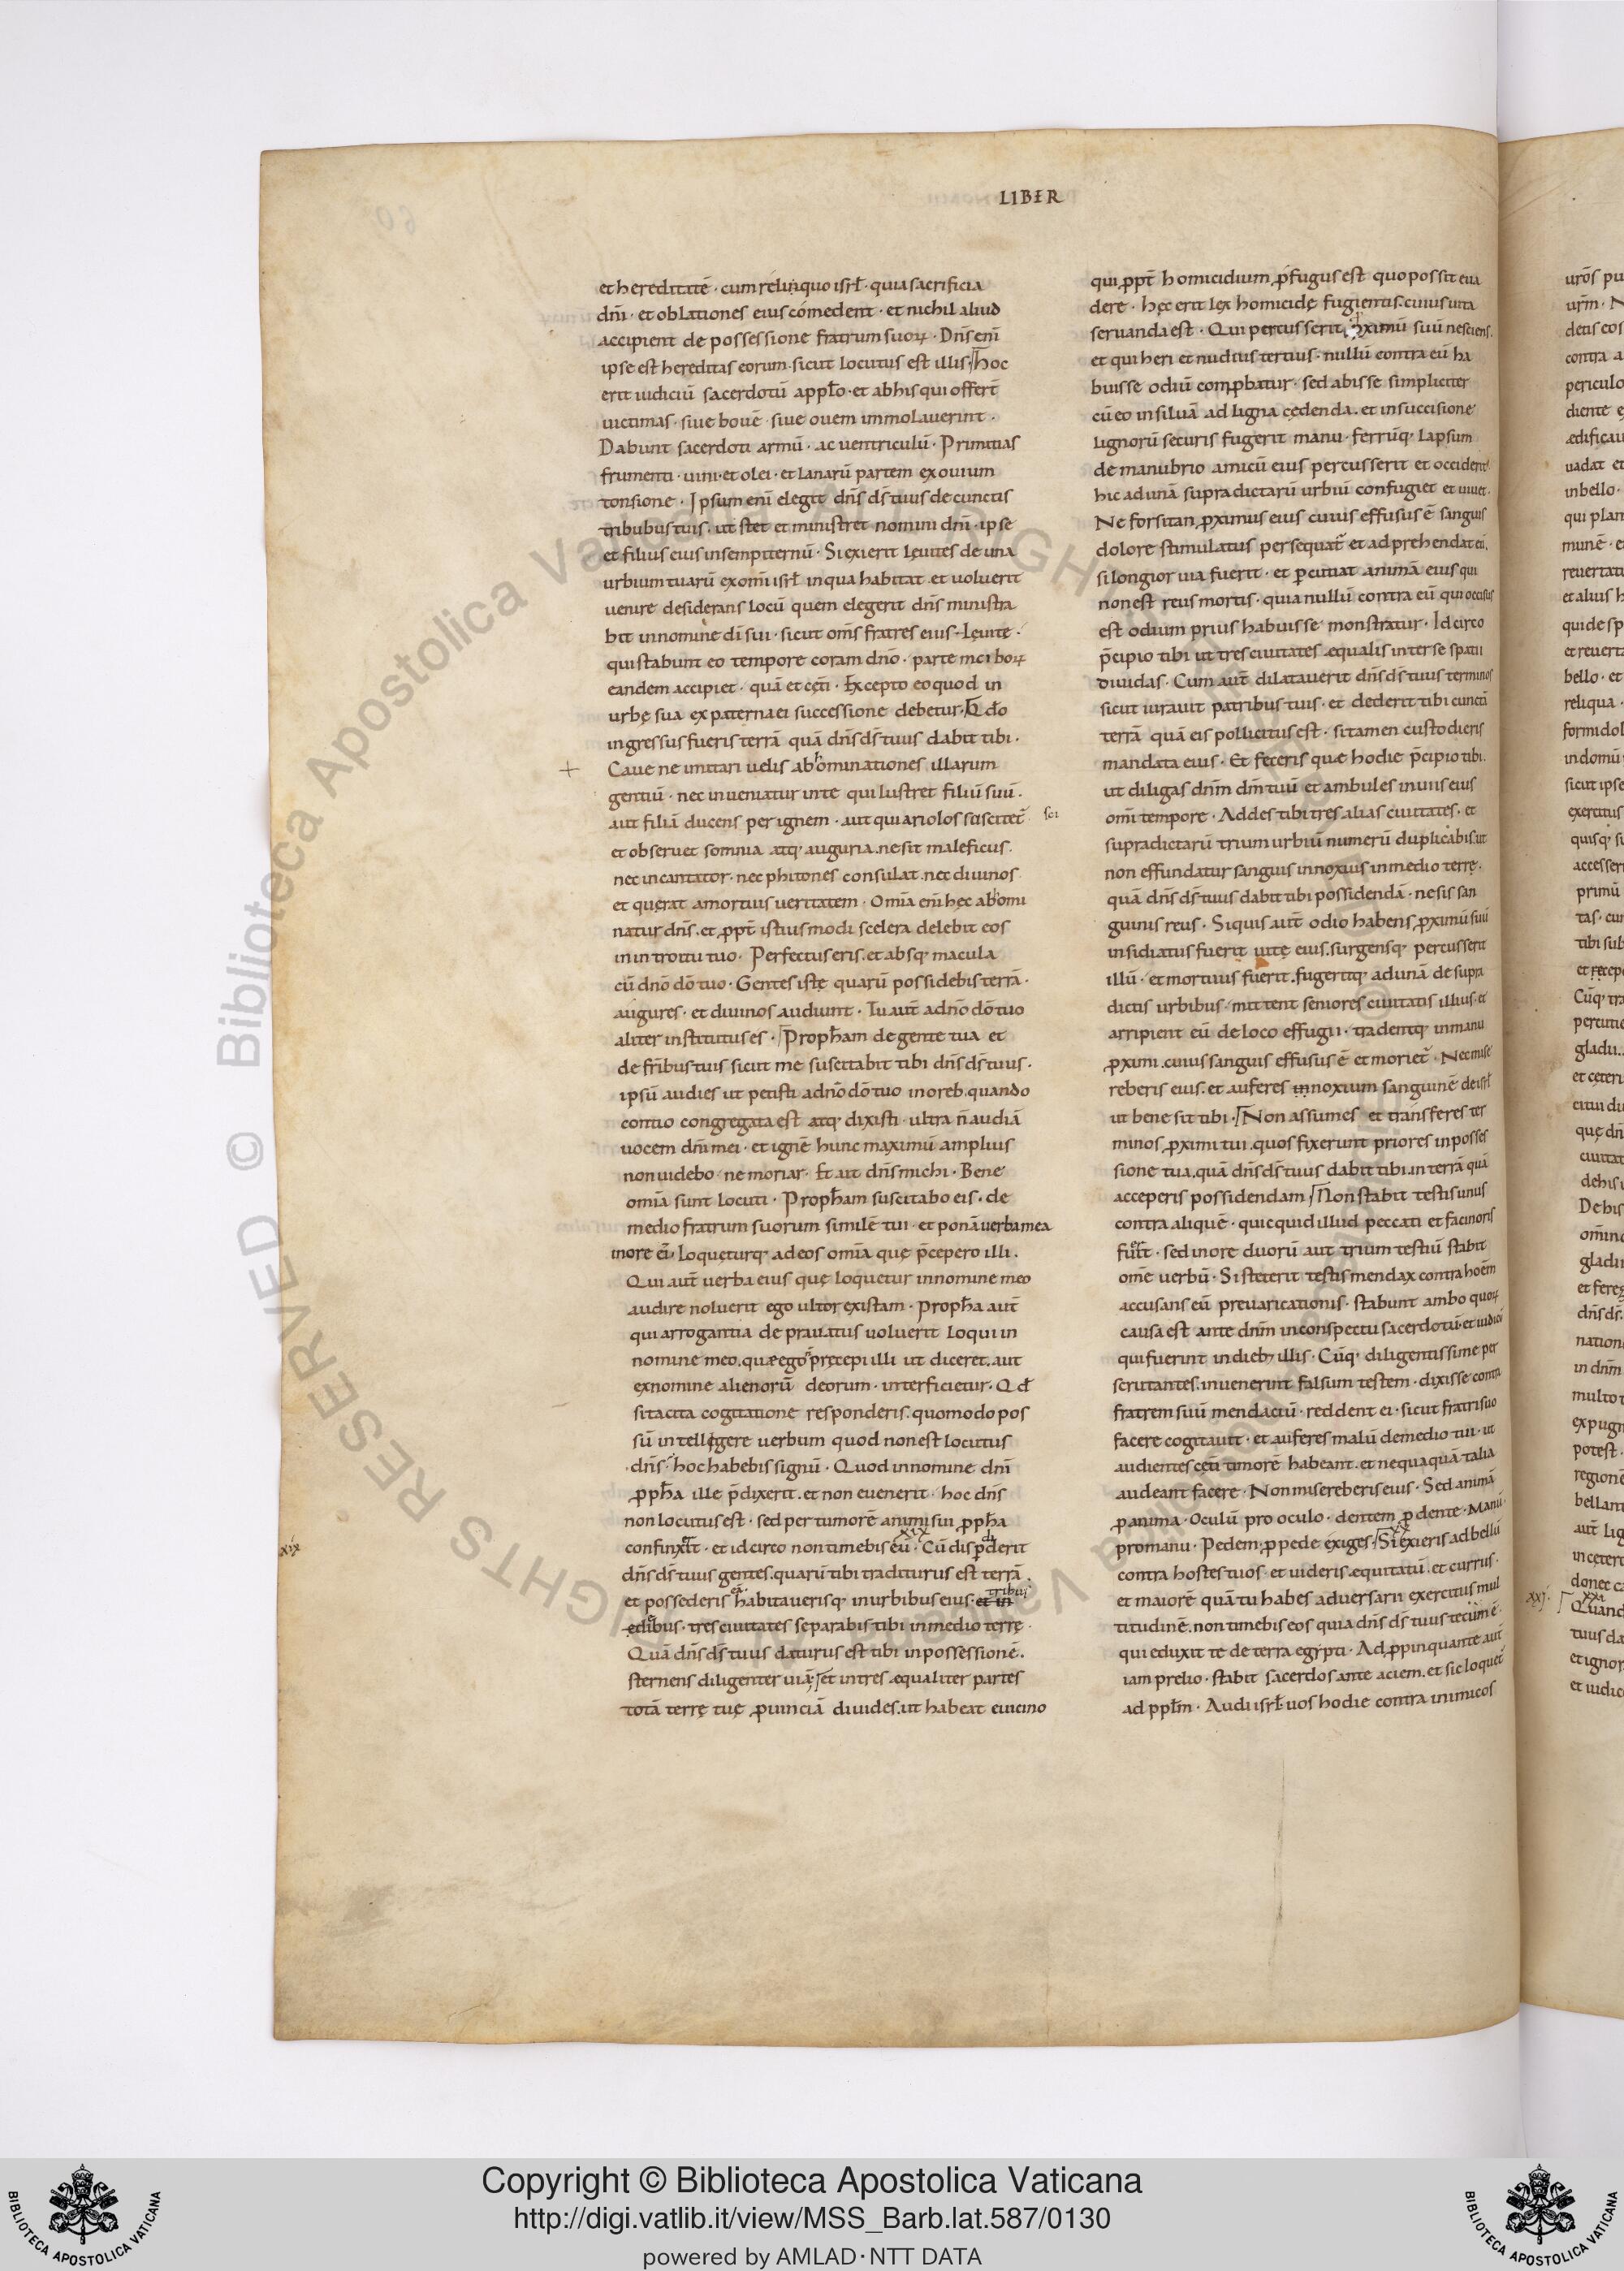 LIBER
et hereditatē · cum reliquo isrł · quia sacrificia
dn̄i · et oblationes eius cómedent · et nichil aliud
accipient de possessione fratrum suoꝝ · Dn̄s eni̅
ipse est hereditas eorum · sicut locutus est illis · Hoc
erit iudiciū sacerdotū a ppłō · et abhis qui offerт̄
uictimas · siue bouē · siue ouem immolauerint ·
Dabunt sacerdoti armū · ac uentriculū · Primitias
frumenti · uini · et olei · et lanarū partem ex ouium
tonsione · Ipsum eni̅ elegit dn̄s ds̄ tuus de cunctis
tribubus tuis · ut stet et ministret nomini dn̄i · ipse
et filius eius insempiternū · Si exierit lęuites de una
urbium tuarū ex omi̅ isrł in qua habitat · et uoluerit
uenire desiderans locū quem elegerit dn̄s ministra
bit innomine di̅ sui · sicut om̄s fratres eius · Lęuitę ·
qui stabunt eo tempore coram dn̄o · parte mciboꝝ
eandem accipiet · quā et cęti̅ · Excepto eo quod in
urbę sua ex paterna ei successione debetur · Qd̄o
ingressus fueris terrā quā dn̄s ds̄ tuus dabit tibi ·
Caue ne imitari uelis abhominationes illarum
gentiū · nec inueniatur inte qui lustret filiū suū ·
aut filiā ducens per ignem · aut qui ariolos suscitet̃
et obseruet somnia atq; auguria · ne sit maleficus ·
nec incantator · nec phitones consulat · nec diuinos
et quęrat a mortuis ueritatem · Omīa eni̅ hęc abhomi
natur dn̄s · et ꝓpt̄ istius modi scelera delebit eos
in introitu tuo · Perfectus eris · et absq; macula
cū dn̄o dō tuo · Gentes istę quarū possidebis terrā ·
augures · et diuinos audiunt · Tu aut̄ adn̄o dō tuo
aliter institutus es · Proph̄am de gente tua et
de fr̄ibus tuis sicut me suscitabit tibi dn̄s ds̄ tuus ·
ipsū audies ut petisti adn̄o dō tuo inoreb · quando
contio congregata est atq; dixisti · ultra n̄ audiā
uocem dn̄i mei · et ignē hunc maximū amplius
non uidebo · ne moriar · Et ait dn̄s michi · Bene
omīa sunt locuti · Proph̄am suscitabo eis · de
medio fratrum suorum similē tui · et ponā uerba mea
inore ei̅ · Loqueturq; ad eos omīa quę p̄cepero illi ·
Qui aut̄ uerba eius quę loquetur innomine meo
audire noluerit ego ultor existam · Proph̄a aut̄
qui arrogantia deprauatus uoluerit loqui in
nomine meo · quæ ego n̄ pręcepi illi ut diceret · aut
ex nomine alienorū deorum · interficietur · Qd̄
si tacita cogitatione responderis · quomodo pos
sū intelligere uerbum quod non est locutus
dn̄s · hoc habebis signū · Quod innomine dn̄i
ꝓph̄a ille p̄dixerit · et non euenerit · hoc dn̄s
non locutus est · sed per tumorē animi sui ꝓph̄a
xix
xix
confinxit · et idcirco non timebis eū · Cū disp̱derit
dn̄s ds̄ tuus gentes · quarū tibi traditurus est terrā ·
et possederis eā · habitauerisq; inurbibus eius · et in
tribui
edibus · tres ciuitates separabis tibi inmedio terrę ·
Quā dn̄s ds̄ tuus daturus est tibi inpossessionē ·
sternens diligenter uiā · et intres æqualiter partes
totā terrę tuę ꝓuinciā diuides · ut habeat euicino
qui ꝓpt̄ homicidium ꝓfugus est quo possit eua
dere · hęc erit lex homicidę fugientis · cuius uita
seruanda est · Qui percusserit ꝓximū suū nesciens ·
et qui heri et nudius tertius · nullū contra eū ha
buisse odiū comꝓbatur · sed abisse simpliciter
cū eo in siluā ad ligna cędenda · et in succisione
lignorū securis fugerit manu · ferrūq; lapsum
de manubrio amicū eius percusserit et occiderit ·
hic ad unā supradictarū urbiū confugiet et uiuet ·
Ne forsitan ꝓximus eius cuius effusus ē sanguis
dolore stimulatus persequat̃ et adprehendat eū ·
si longior uia fuerit · et ꝑcutiat animā eius qui
non est reus mortis · quia nullū contra eū qui occisus
est odium prius habuisse monstratur · Idcirco
p̄cipio tibi ut tres ciuitates æqualis inter se spatii
diuidas · Cum aut̄ dilatauerit dn̄s ds̄ tuus terminos
sicut iurauit patribus tuis · et dederit tibi cunctā
terrā quā eis pollicitus est · si tamen custodieris
mandata eius · Et feceris quæ hodie p̄cipio tibi ·
ut diligas dn̄m dm̄ tuū et ambules inuiis eius
omi̅ tempore · Addes tibi tres alias ciuitates · et
supradictarū trium urbiū numerū duplicabis · ut
non effundatur sanguis innoxius inmedio terrę ·
quā dn̄s ds̄ tuus dabit tibi possidendā · ne sis san
guinis reus · Siquis aut̄ odio habens ꝓximū suū
insidiatus fuerit uitę eius · surgensq; percusserit
illū · et mortuus fuerit · fugeritq; ad unā de supra
dictis urbibus · mittent seniores ciuitatis illius · et
arripient eū de loco effugii · tradentq; inmanu
ꝓximi · cuius sanguis effusus ē et moriet̃ · Nec mise
reberis eius · et auferes innoxium sanguinē de isrł
ut bene sit tibi · Non assumes et transferes ter
minos ꝓximi tui · quos fixerunt priores inposses
sione tua · quā dn̄s ds̄ tuus dabit tibi · in terrā quā
acceperis possidendam · Non stabit testis unus
contra aliquē · quicquid illud peccati et facinoris
fūit · sed inore duorū aut trium testiū stabit
om̄e uerbū · Si steterit testis mendax contra hoēm
accusans eū preuaricationis · stabunt ambo quoꝝ
causa est ante dn̄m inconspectu sacerdotū · et iudicū
qui fuerint in dieb; illis · Cūq; diligentissime per
scrutantes · inuenerint falsum testem · dixisse contra
fratrem suū mendaciū · reddent ei · sicut fratri suo
facere cogitauit · et auferes malū demedio tui · ut
audientes cęti̅ timorē habeant · et nequaquā talia
audeant facere · Non misereberis eius · Sed animā
ꝓ anima · Oculū pro oculo · dentem ꝓ dente · Manū
xx
promanu · Pedem ꝓ pede exiges · Si exieris ad bellū
contra hostes tuos · et uideris æquitatū · et currus ·
et maiorē quā tu habes aduersarii exercitus mul
titudinē · non timebis eos quia dn̄s ds̄ tuus tecū mē ·
qui eduxit te de terra egypti · Adꝓpinquante aut̄
iam prelio · stabit sacerdos ante aciem · et sic loquet̃
ad ppłm · Audi isrł · uos hodie contra inimicos
Copyright © Biblioteca Apostolica Vaticana
http://digi.vatlib.it/view/MSS_Barb.lat.587/0130
powered by AMLAD·NTT DATA
BIBLIOTECA APOSTOLICA VATICANA
BIBLIOTECA APOSTOLICA VATICANA